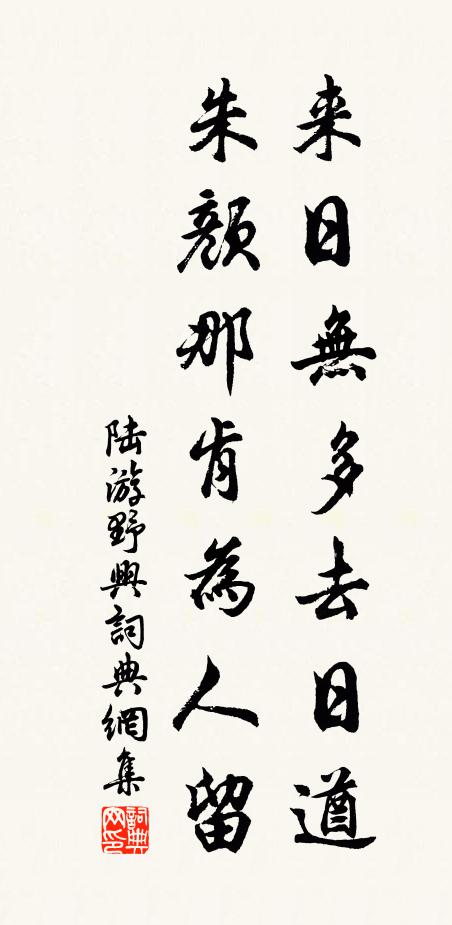 来日無多去日遒
朱顏那肯為人留
陆游野興詞典網集
詞典网印